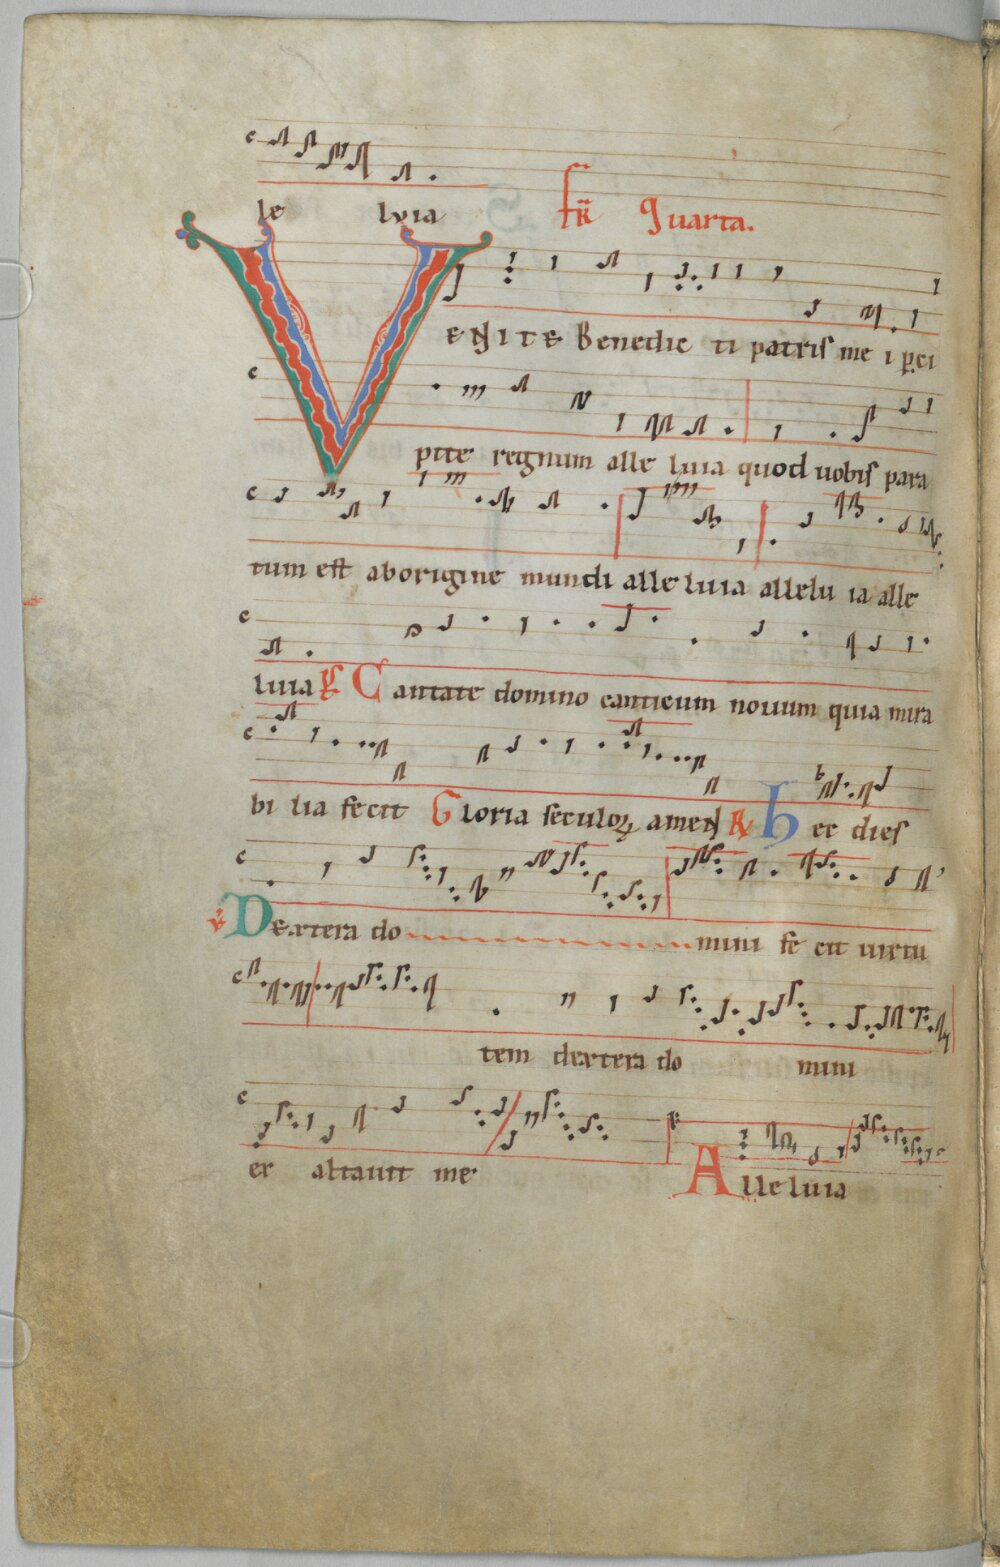 le lvia fr̄ Quarta.
VENITE Benedic ti patris me i p̱ci
pite regnum alle luia quod uobis para
tum est aborigine mundi alle luia allelu ia alle
luia Cantate domino canticum nouum quia mira
bi lia fecit Gloria seculoꝝ ameN ℟ hec dies
℣ Dextera do mini fe cit uirtu
tem dextera do mini
ex altauit me Alle luia